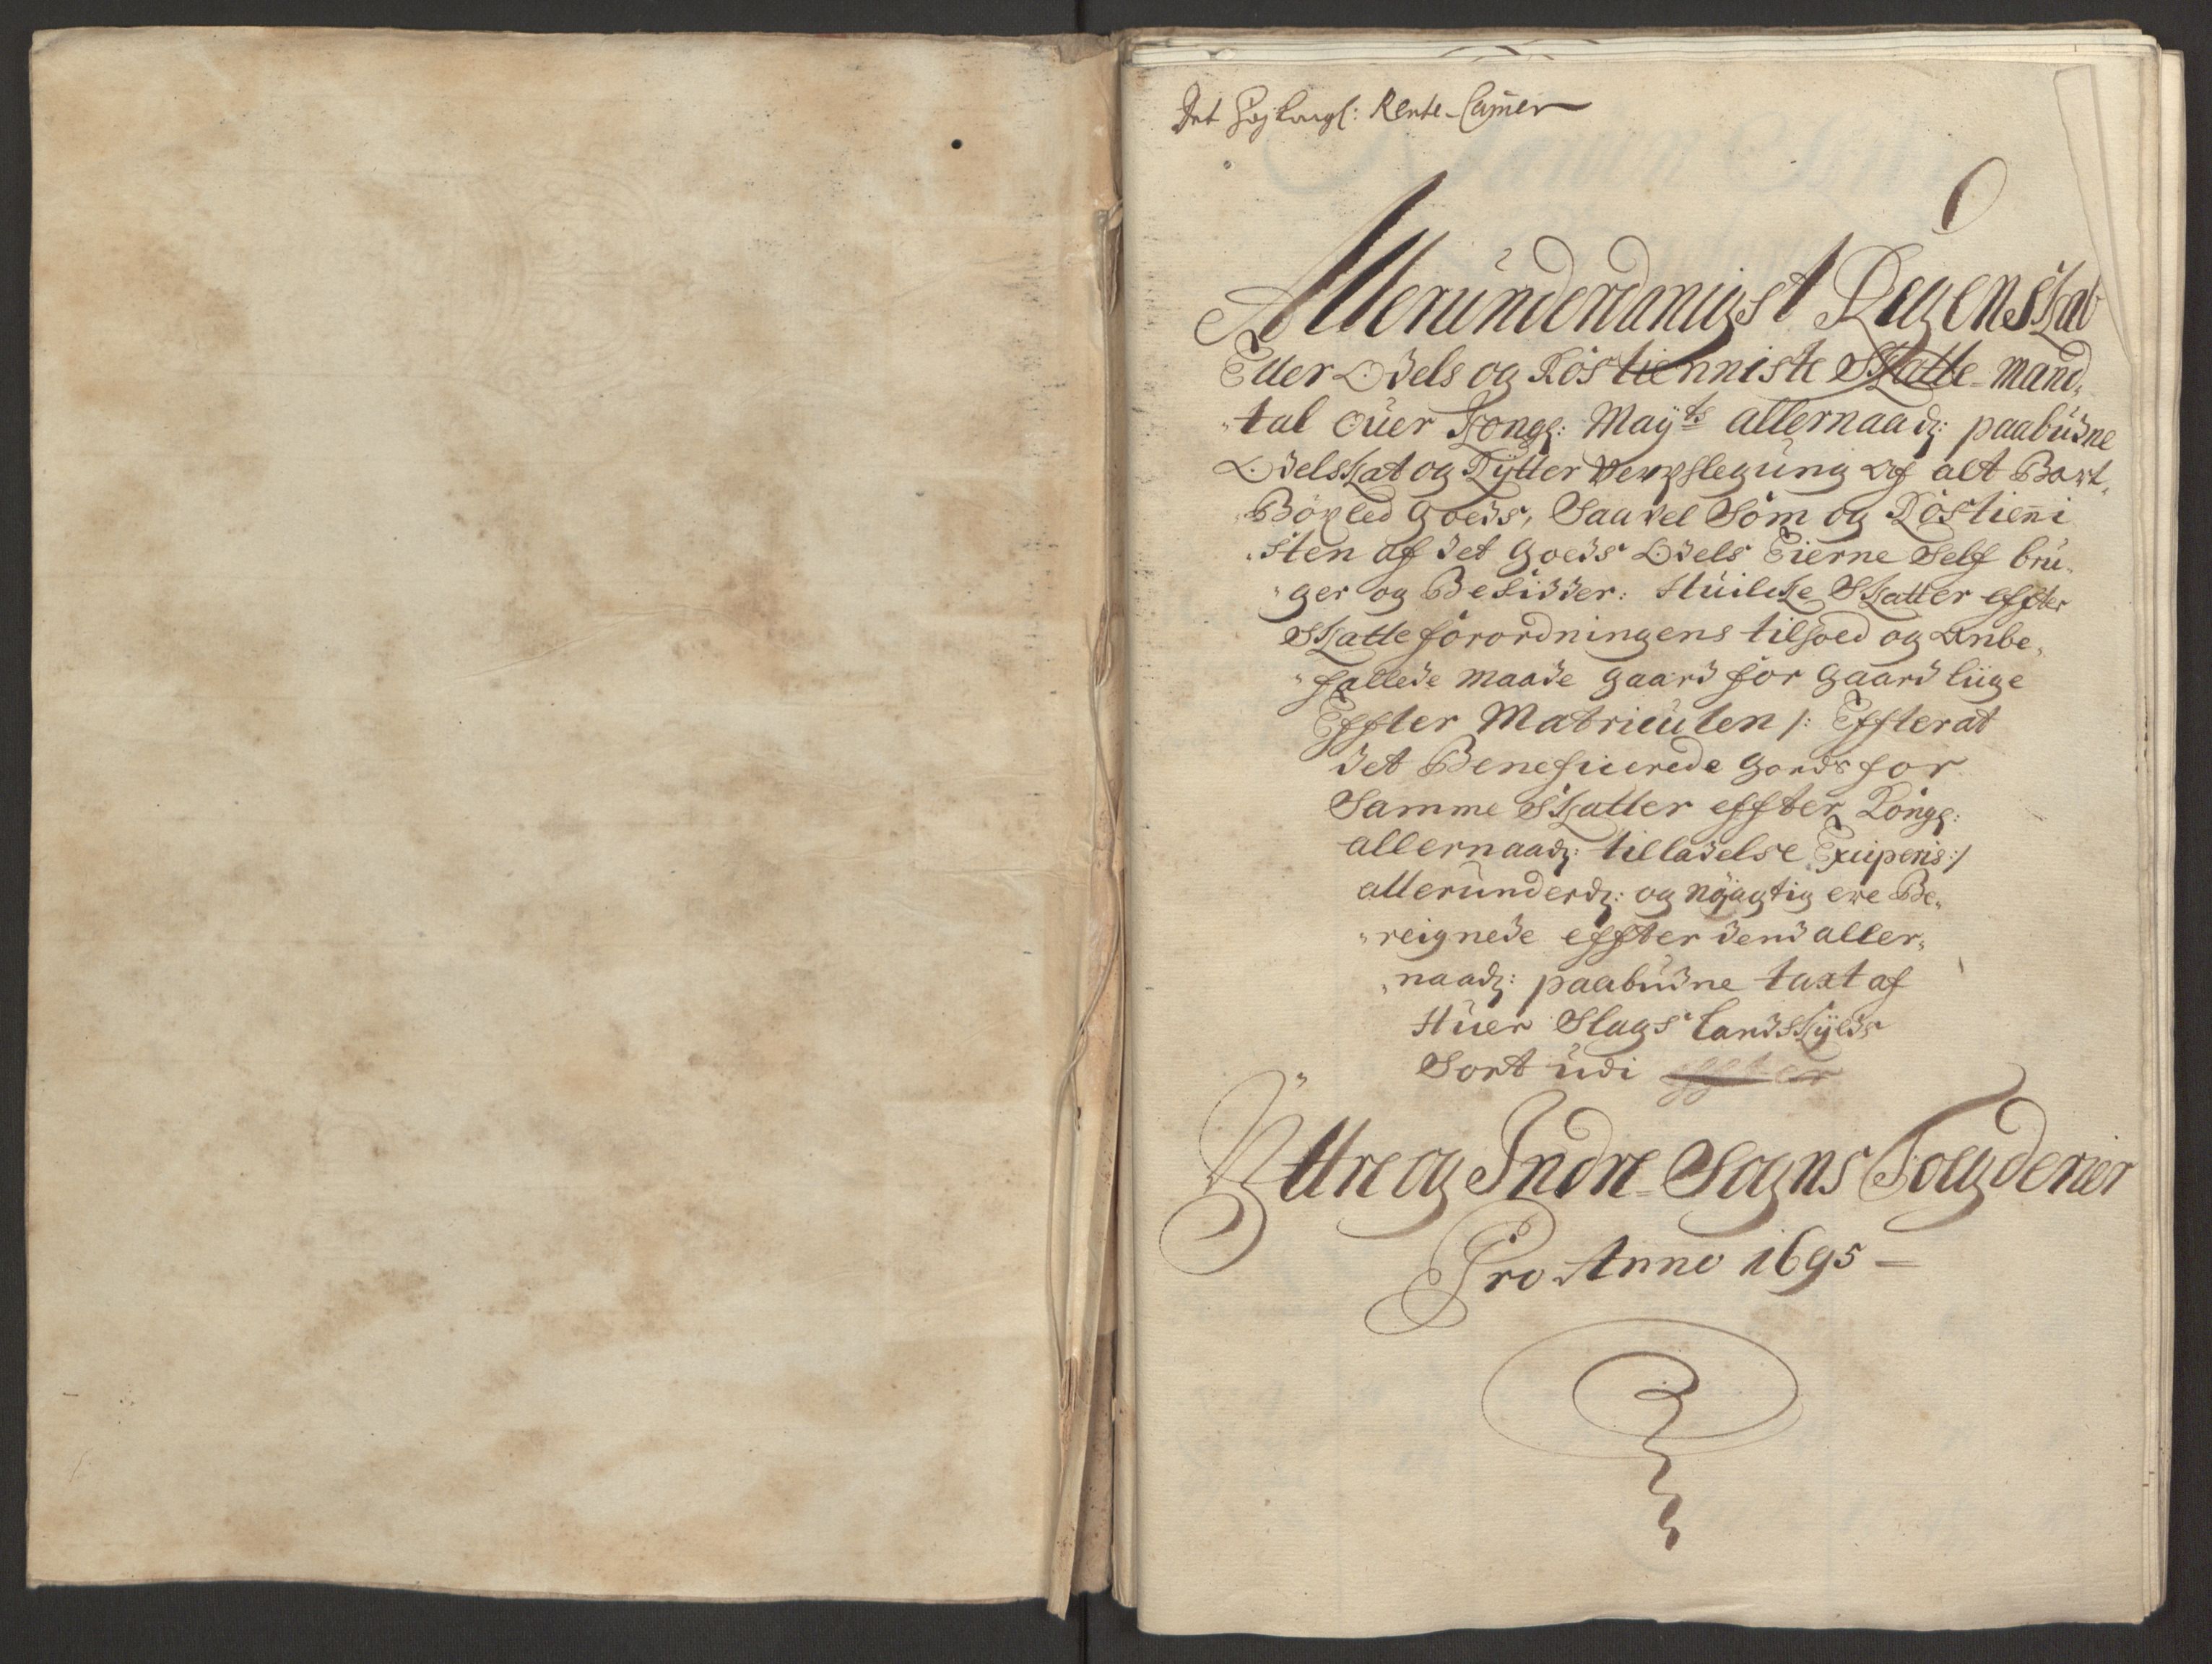 Det Høj Kongl: Rente-Camer
Allerunderdanigst Regenskab
Eller Odels og Rostienniste Skatte-Mand„
„tal Ofuer Kongl: Mayts allernaadg: paabudne
Odelskat og Rytter Verpflegung Af alt Bort„
„Böxled Goeds, Saavel Som og Rostienni
„sten af det Goeds Odels Eierne Self bru„
„ger og Besidder: Huilcke Skatter effter
Skatteforordningens tilhoed og Anbe„
„fallede Maade Gaard for Gaard liige
Effter Matriculen /: Effterat
det Beneficerede Gords for
Samme Skatter effter Kongl:
allernaadg: tilladelse Exciperis :/
allerunderdg: og Nøyagtig ere Be„
„reignede effter dend aller„
„naadg: paabudne taxt af
Huer Slags Landskylds
Sort udi effter
Yttre og Indre-Sogns Fogderier
Pro Anno 1695 —